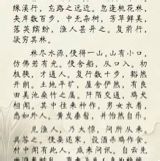 缘溪行，忘路之远近。忽逢桃花林，
夹岸数百步，中无杂树，芳草鲜美，
落英缤纷，渔人甚异之。复前行，
欲穷其林。
林尽水源，便得一山，山有小口，
仿佛若有光。便舍船，从口入。初
极狭，才通人。复行数十步，豁然
开朗。土地平旷，屋舍俨然，有良
田美池桑竹之属。阡陌交通，鸡犬
相闻。其中往来种作，男女衣着，
悉如外人。黄发垂髫，并怡然自乐。
见渔人，乃大惊，问所从来。
具答之。便要还家，设酒杀鸡作食。
村中闻有此人，咸来问讯。自云先